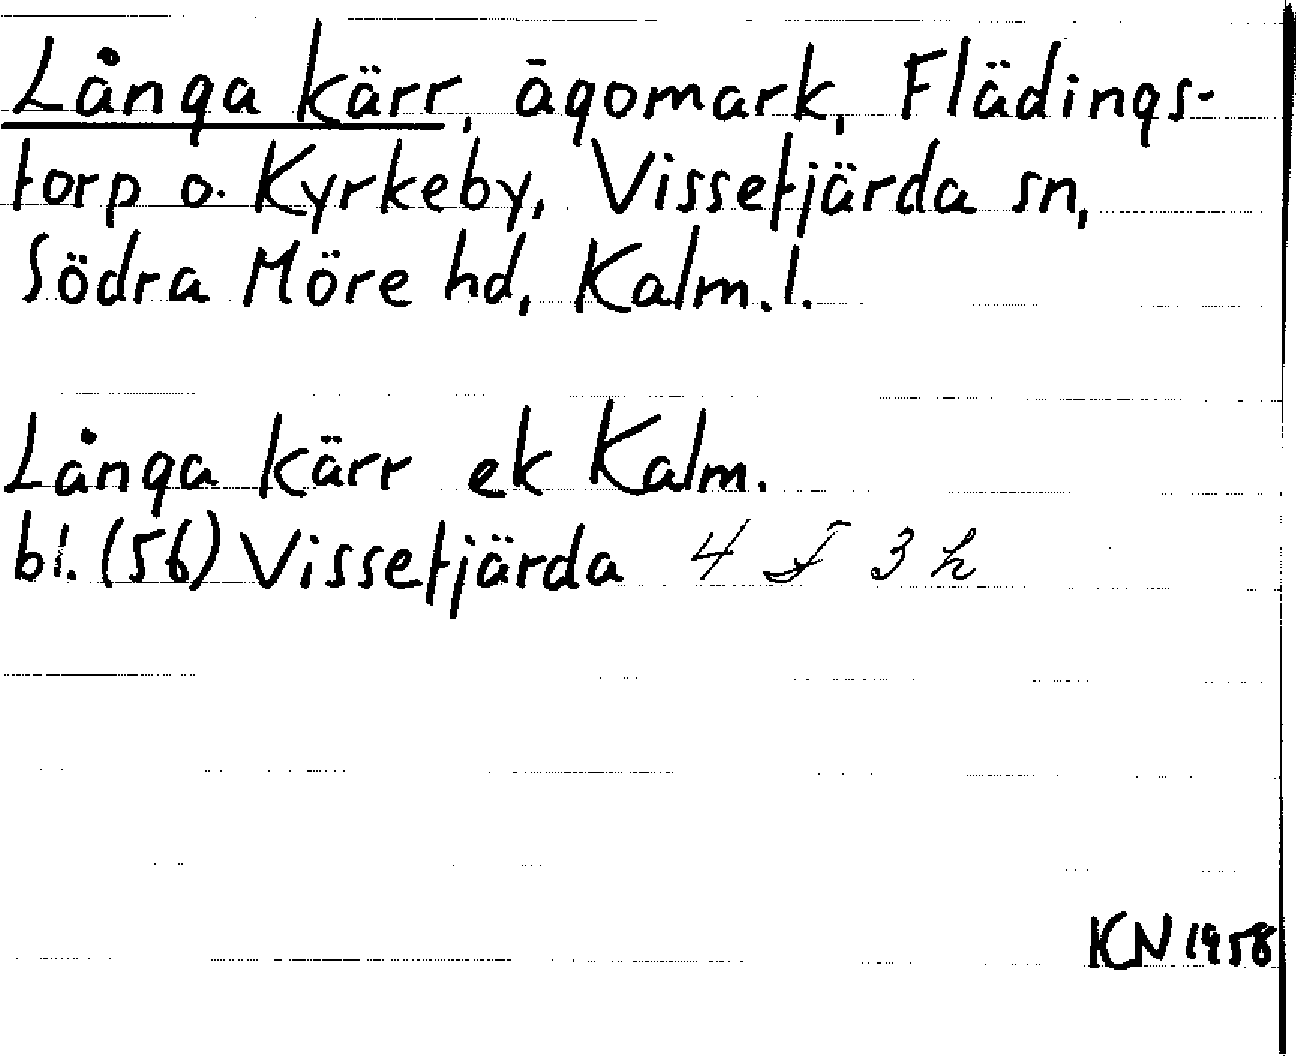 Långa kärr, ägomark, Flädings-
torp o. Kyrkeby, Vissefjärda sn,
Södra Möre hd, Kalm. l.
Långa kärr ek Kalm.
bl. (56) Vissefjärda 4 F 3 h
KN 1958